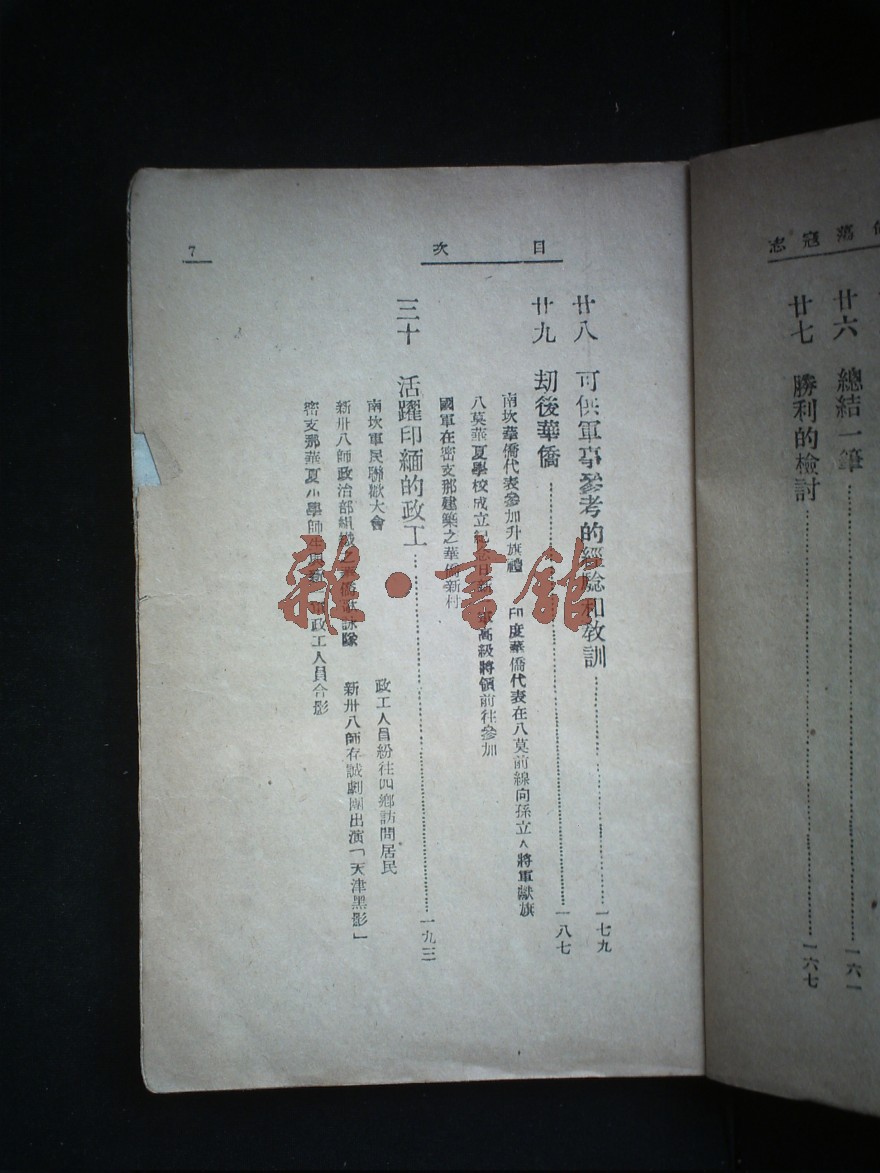 蕩寇志
廿六 總結一筆 一六一
廿七 勝利的檢討 一六七
目次
廿八 可供軍事參考的經驗和教訓 一七九
廿九 劫後華僑 一八七
南坎華僑代表參加升旗禮 印度華僑代表在八莫前線向孫立人將軍獻旗
八莫華夏學校成立紀念日 高級將領前往參加
國軍在密支那建築之華僑新村
三十 活躍印緬的政工 一九三
南坎軍民聯歡大會 政工人員紛往四鄉訪問居民
新卅八師政治部組織之華僑歌詠隊 新卅八師存誠劇團出演「天津黑影」
密支那華夏小學師生 政工人員合影
7
雜·書館